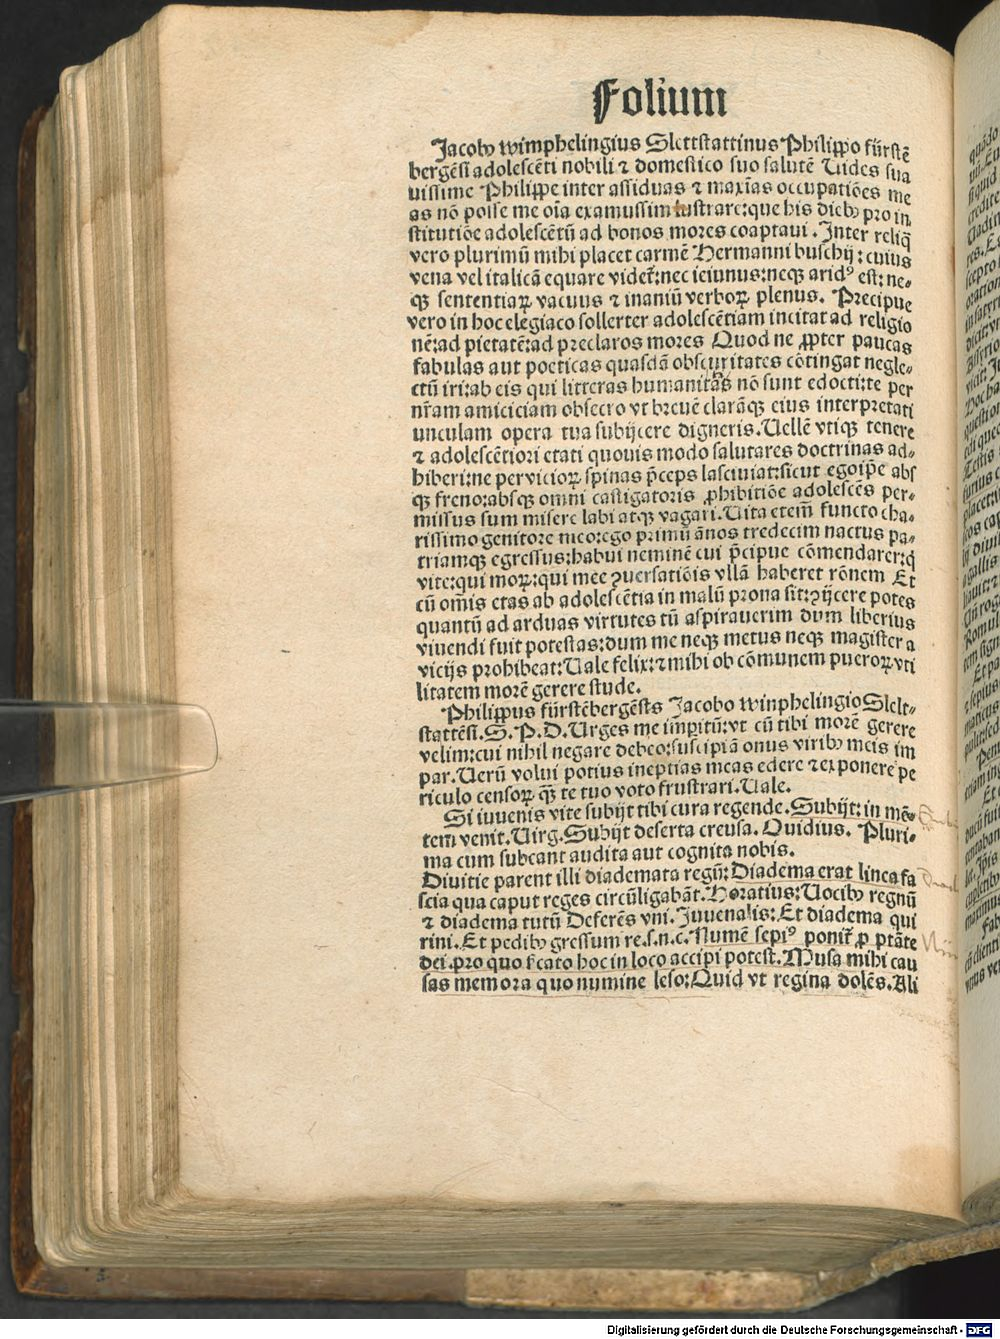 Folium
Jacobꝰ wimphelingius Slettstattinus Philippo fürstē
bergēsi adolescēti nobili ⁊ domestico suo salutē Uides sua
uissime Philippe inter assiduas ⁊ maxīas occupatiōes me
as nō posse me oīa examussim lustrare: que his diebꝰ pro in
stitutiōe adolescētū ad bonos mores coaptaui. Inter reliq̄
vero plurimū mihi placet carmē Hermanni buschij: cuius
vena vel italicā equare videt̄: nec ieiunus: neqꝫ aridꝰ est: ne⸗
qꝫ sententiaꝝ vacuus ⁊ inaniū verboꝝ plenus. Precipue
vero in hoc elegiaco sollerter adolescētiam incitat ad religio
nē: ad pietatē: ad preclaros mores Quod ne ꝓpter paucas
fabulas aut poeticas quasdā obscuritates cōtingat negle⸗
ctū iri: ab eis qui litteras humanitatis nō sunt edocti: te per
nr̄am amiciciam obsecro vt breuē clarāqꝫ eius interpretati
unculam opera tua subijcere digneris. Uellē vtiqꝫ tenere
⁊ adolescētiori etati quouis modo salutares doctrinas ad⸗
hiberi: ne per vicioꝝ spinas p̄ceps lasciuiat: sicut egoip̄e abs
qꝫ freno: absqꝫ omni castigatoris ꝓhibitiōe adolescēs per⸗
missus sum misere labi atqꝫ vagari. Uita etem̄ functo cha⸗
rissimo genitore meo: ego primū ānos tredecim nactus pa⸗
triamqꝫ egressus: habui neminē cui p̄cipue cōmendarer: q̄
vite: qui moꝝ: qui mee ꝯuersatiōis vllā haberet rōnem Et
cū om̄is etas ab adolescētia in malū prona sit: ꝯijcere potes
quantū ad arduas virtutes tū aspirauerim dum liberius
viuendi fuit potestas: dum me neqꝫ metus neqꝫ magister a
vicijs prohibeat: Uale felix: ⁊ mihi ob cōmunem pueroꝝ vti
litatem morē gerere stude.
Philippus fürstēbergēsis Jacobo winphelingio Slelt⸗
stattēsi. S. P. D. Urges me imp̄itū: vt cū tibi morē gerere
velim: cui nihil negare debeo: suscipiā onus viribꝰ meis im
par. Uerū volui potius ineptias meas edere ⁊ exponere pe
riculo censoꝝ qꝫ̄ te tuo voto frustrari. Uale.
Si iuuenis vite subijt tibi cura regende. Subijt: in mē⸗
tem venit. Uirg. Subijt deserta creusa. Ouidius. Pluri⸗
ma cum subeant audita aut cognita nobis.
Diuitie parent illi diademata regū: Diadema erat linea fa
scia qua caput reges circūligabāt. Horatius: Uocibꝰ regnū
⁊ diadema tutū Deferēs vni. Juuenalis: Et diadema qui
rini. Et pedibꝰ gressum re. s. n. c. Numē sepiꝰ ponit̄ ꝓ ptāte
dei. pro quo f̄cato hoc in loco accipi potest. Musa mihi cau
sas memora quo numine leso: Quid vt regina dolēs. Ali